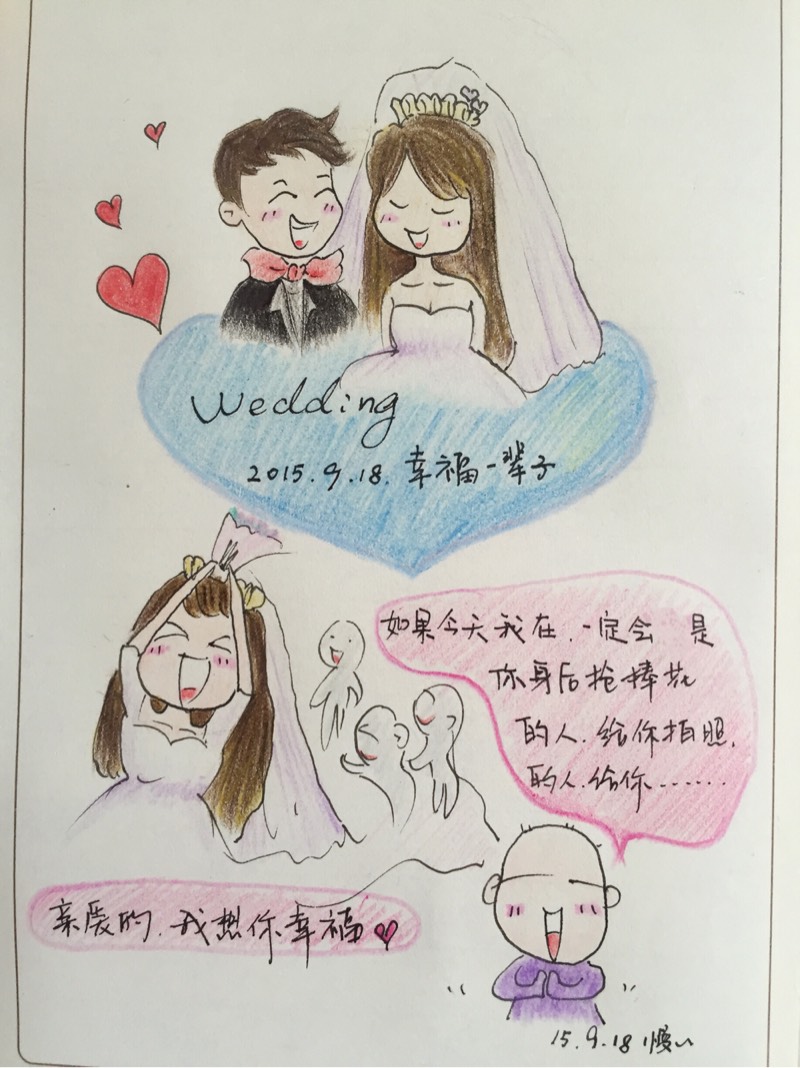 Wedding
2015.9.18.幸福一辈子
如果今天我在.一定会 是
你身后抢捧花
的人.给你拍照.
的人.给你......
亲爱的.我想你幸福
15.9.18